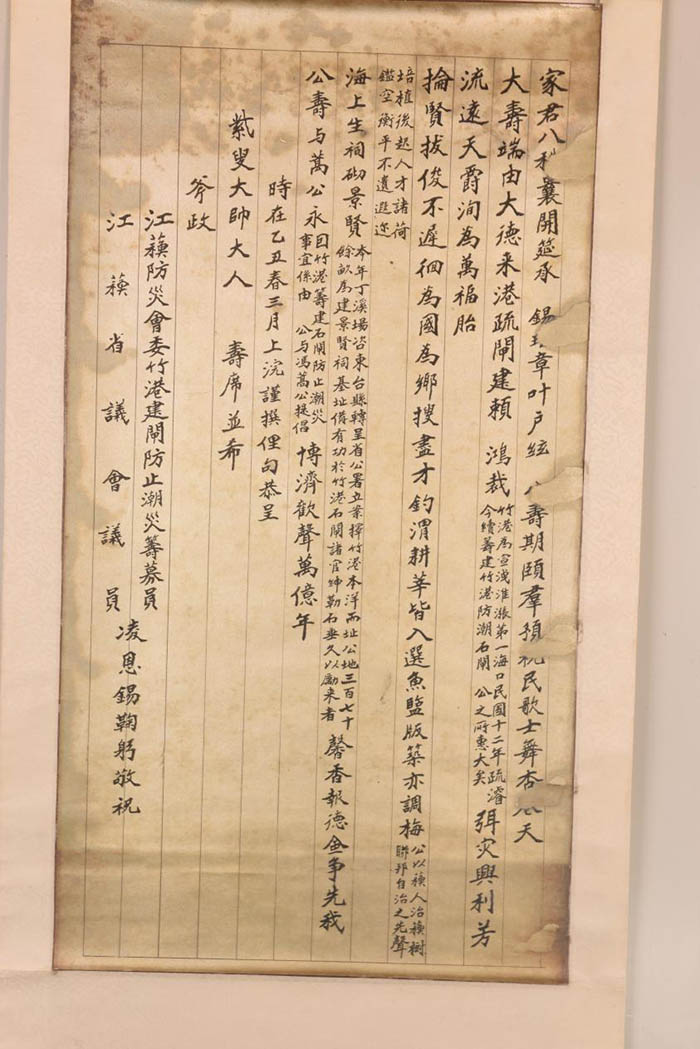 家君八秩曩開筵承 錫章叶戶絃 壽期頤羣預祝民歌士舞杏天
大壽端由大德来港疏閘建賴 鴻裁
竹港為宣洩淮漲第一海口民國十二年疏濬
今續籌建竹港防潮石閘 公之所惠大矣
弭灾興利芳
流遠天爵洵為萬福胎
掄賢拔俊不遲徊為國為鄉搜盡才釣渭耕莘皆入選魚盬版築亦調梅
公以積人治積樹
聯邦自治之先聲
培植後起人才諸荷
鑑空衡平不遺遐迩
海上生祠砌景賢
本年丁溪場咨東台縣轉呈省公署立案擇竹港本洋面址公地三百七十
餘畝為建景賢祠基址俻有功於竹港石閘諸官紳勒石垂久以勵来者
馨香報德僉争先我
公壽与萬公永
因竹港籌建石閘防止潮災
事宜係由 公与馮萬公提倡
博濟歡聲萬億年
時在乙丑春三月上浣謹撰俚句恭呈
紫叟大帥大人 壽席並希
斧政
江蘓防災會委竹港建閘防止潮災籌募員
江蘓省議會議員
凌恩錫鞠躬敬祝